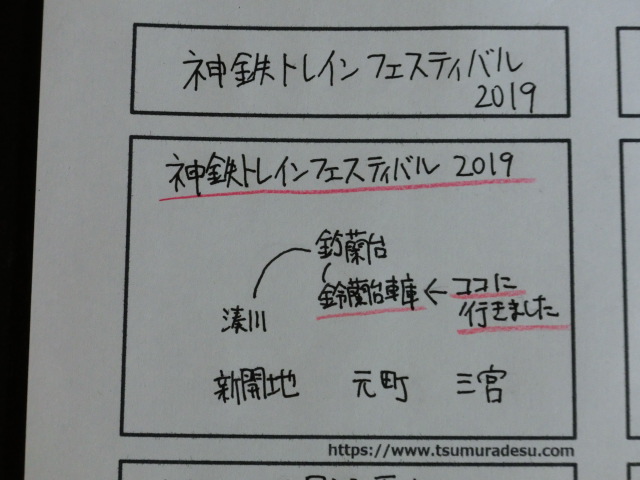 神鉄トレインフェスティバル
2019
神鉄トレインフェスティバル 2019
鈴蘭台
鈴蘭台車庫 ← ココに
行きました
湊川
新開地 元町 三宮
https://www.tsumuradesu.com